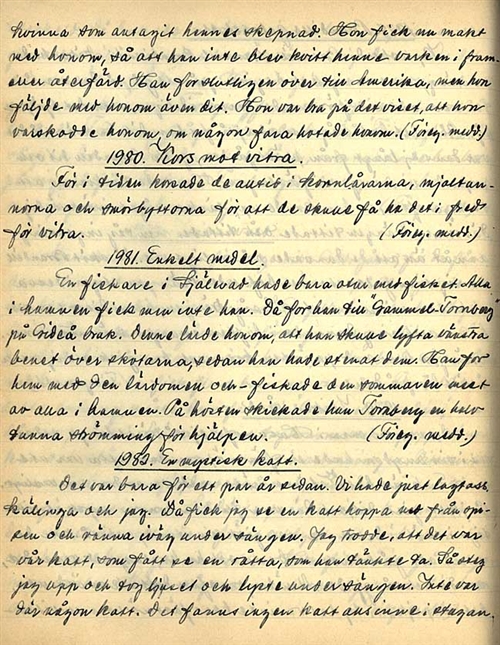 kvinna som antagit hennes skepnad. Hon fick nu makt
med honom, så att han inte blev kvitt henne varken i fram-
eller återfärd. Han for slutligen över till Amerika, men hon
följde med honom även dit. Hon var bra på det viset, att hon
varskodde honom, om någon fara hotade honom. (Föreg. medd.)
1980. Kors mot vitra.
För i tiden korsade de alltid i kornlårarna, mjölkan-
norna och smörbyttorna för att de skulle få ha det i fred
för vitra. (Föreg. medd.)
1981. Enkelt medel.
En fiskare i Själevad hade bara otur med fisket. Alla
i hamnen fick men inte han. Då for han till "Gammel-Tornberg"
på Gideå bruk. Denne lärde honom, att han skulle lyfta vänstra
benet över skötarna, sedan han hade stenat dem. Han for
hem med den lärdomen och fiskade den sommaren mest
av alla i hamnen. På hösten skickade han Tornberg en halv
tunna strömming för hjälpen. (Föreg. medd.)
1982. En mystisk katt.
Det var bara för ett par år sedan. Vi hade just lagt oss,
kälinga och jag. Då fick jag se en katt hoppa ned från spi-
sen och ränna iväg under sängen. Jag trodde, att det var
vår katt, som fått se en råtta, som han tänkte ta. Så steg
jag upp och tog ljuset och lyste under sängen. Inte var
där någon katt. Det fanns ingen katt alls inne i stugan.